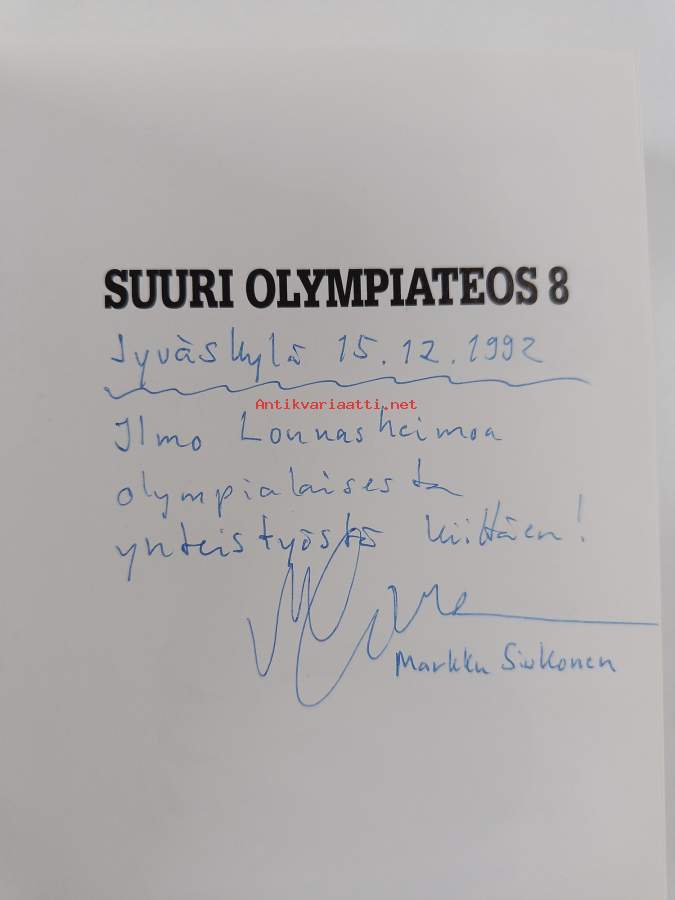 SUURI OLYMPIATEOS 8
Jyväskylä 15.12.1992
Antikvariaatti.net
Ilmo Lounasheimoa
olympialaisesta
yhteistyöstä kiittäen!
Markku Siukonen